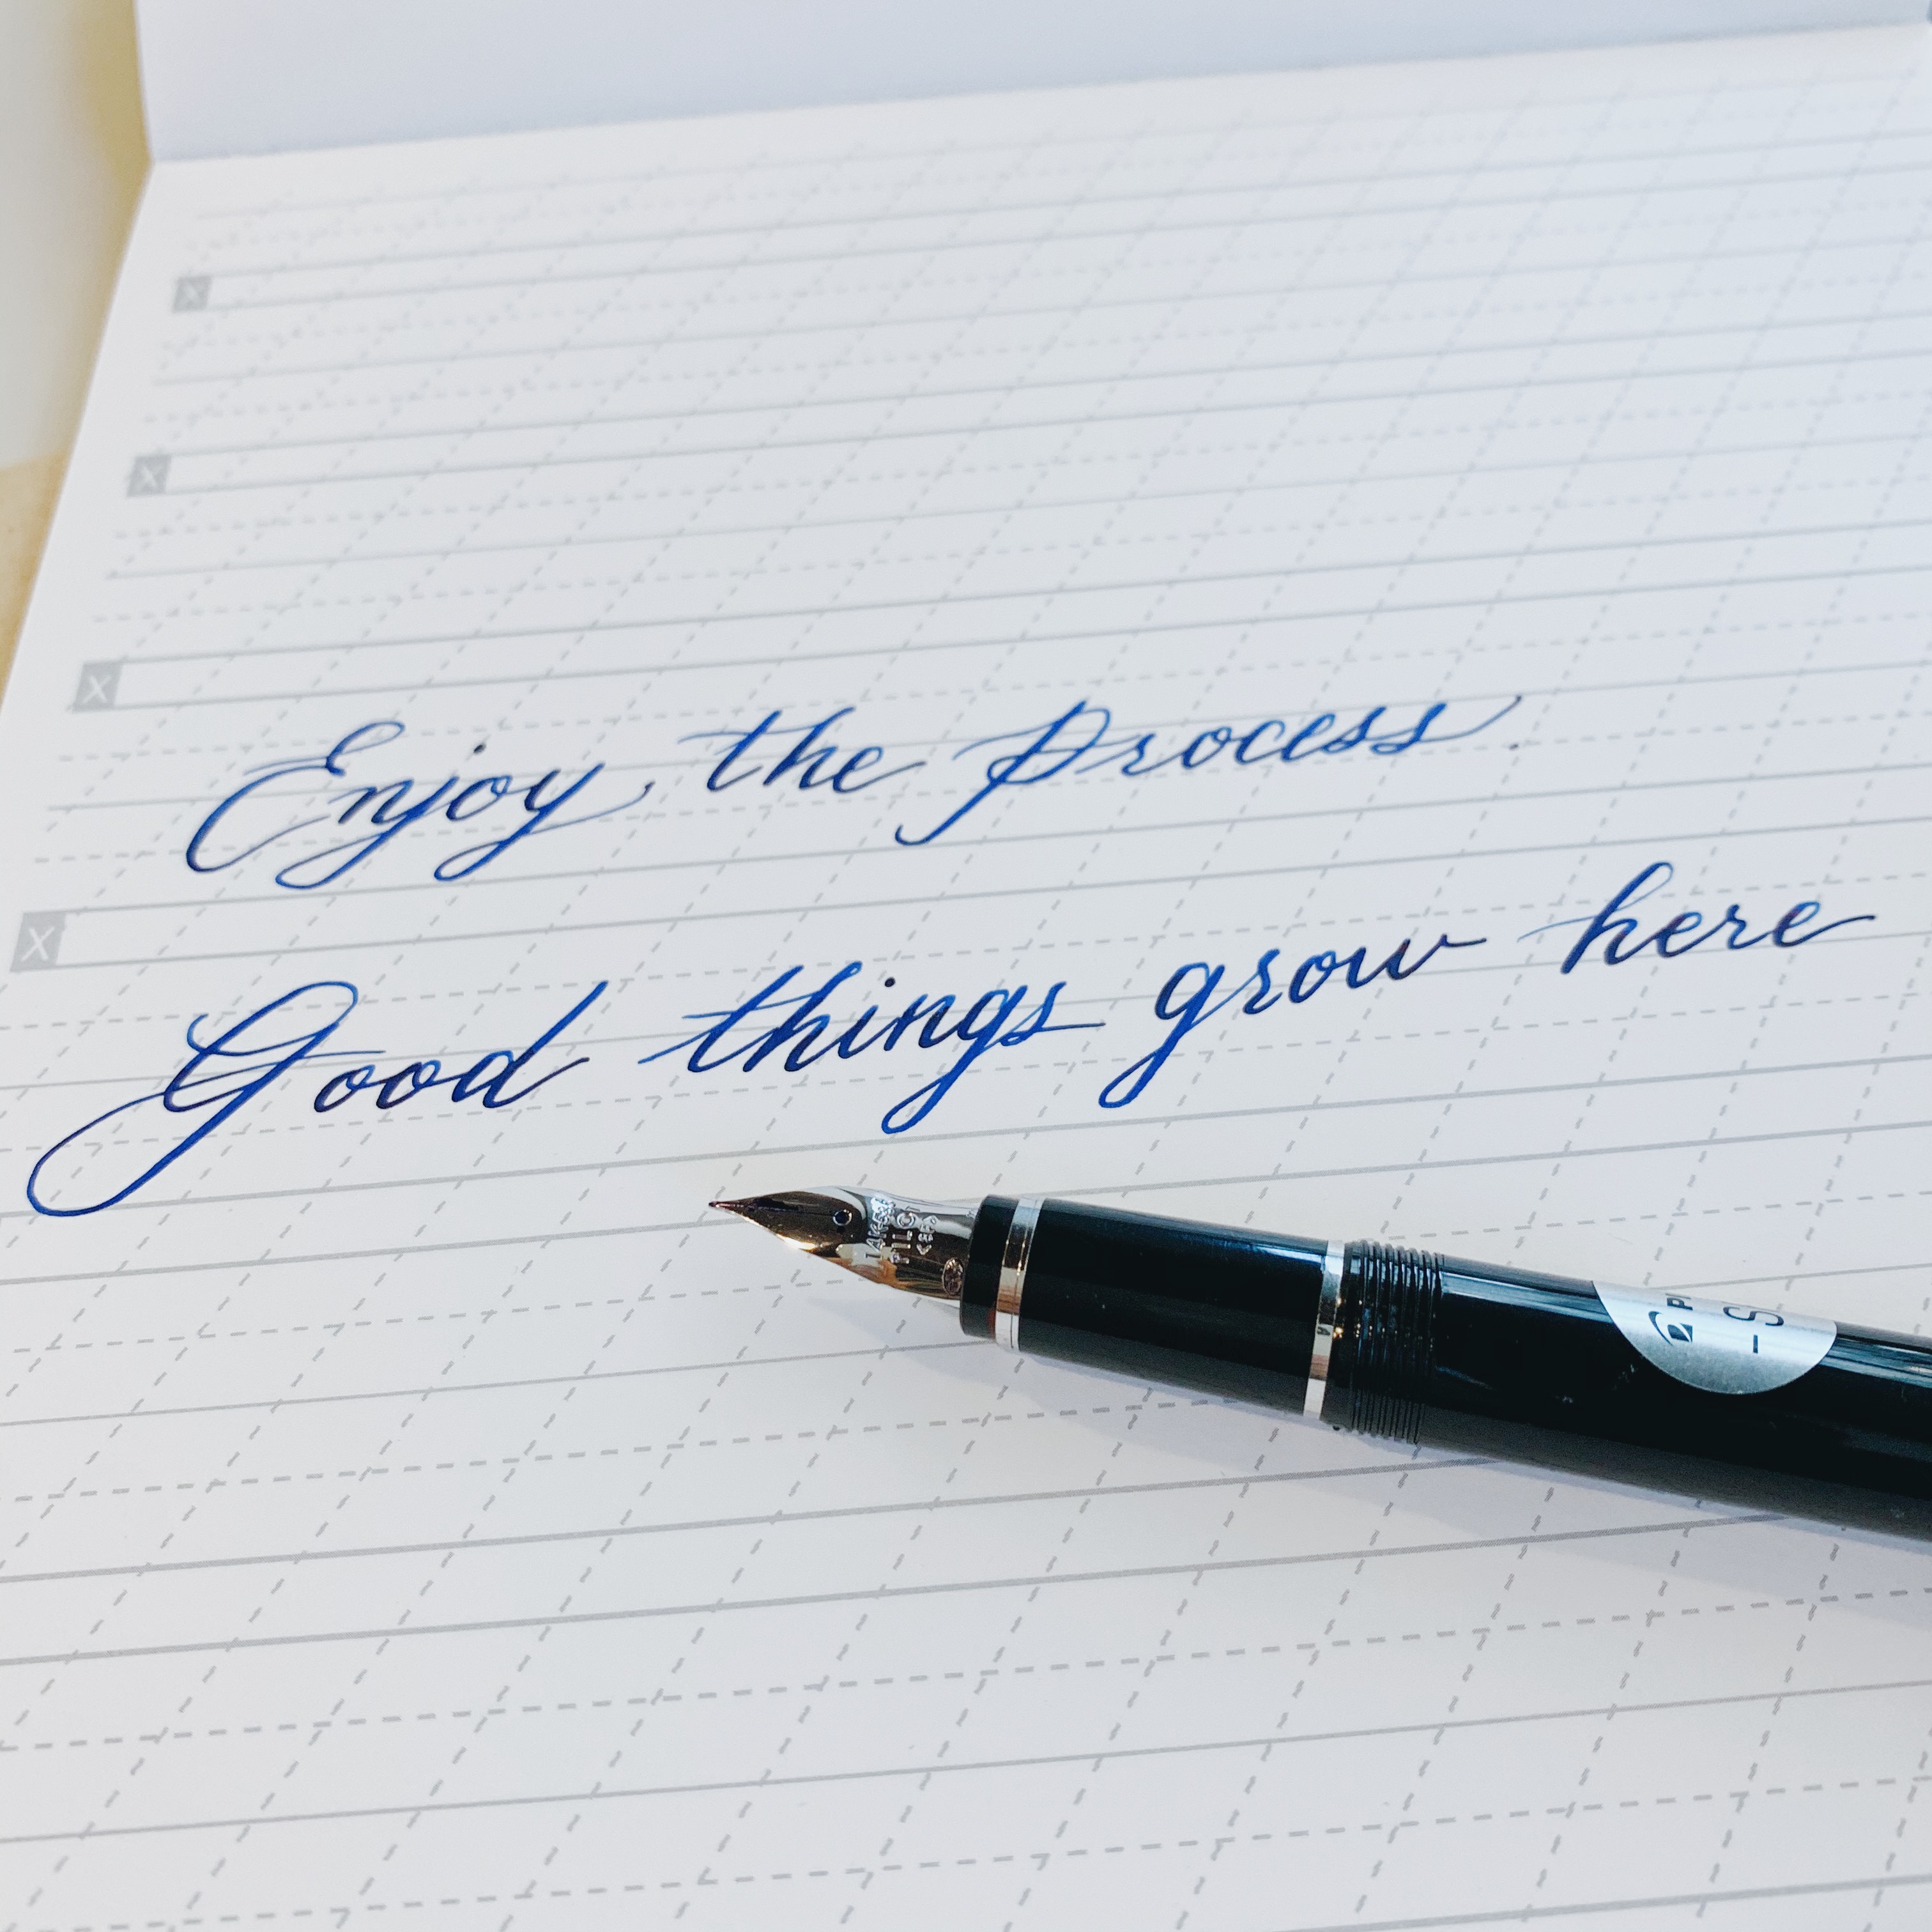 x
x
x
Enjoy the process.
x
Good things grow here
PILOT